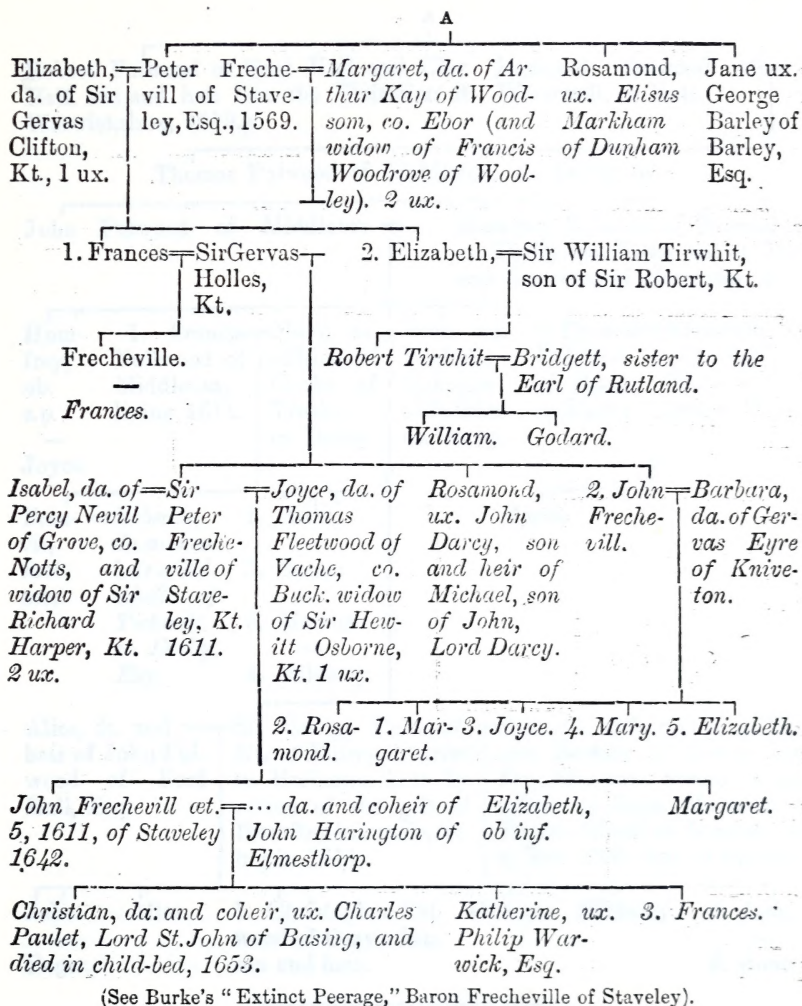 A
Elizabeth,
da. of Sir
Gervas
Clifton,
Kt., 1 ux.
Peter Freche-
vill of Stave-
ley, Esq., 1569.
Margaret, da. of Ar
thur Kay of Wood-
som, co. Ebor (and
widow of Francis
Woodrove of Wool-
ley). 2 ux.
Rosamond,
ux. Elisus
Markham
of Dunham
Jane ux.
George
Barley of
Barley,
Esq.
1. Frances
Sir Gervas
Holles,
Kt.
2. Elizabeth,
Sir William Tirwhit,
son of Sir Robert, Kt.
Frecheville.
Frances.
Robert Tirwhit
Bridgett, sister to the
Earl of Rutland.
William. Godard.
Isabel, da. of
Percy Nevill
of Grove, co.
Notts, and
widow of Sir
Richard
Harper, Kt.
2 ux.
Sir
Peter
Freche-
ville of
Stave-
ley, Kt.
1611.
Joyce, da. of
Thomas
Fleetwood of
Vache, co.
Buck. widow
of Sir Hew-
itt Osborne,
Kt. 1 ux.
Rosamond,
ux. John
Darcy, son
and heir of
Michael, son
of John,
Lord Darcy.
2. John
Freche-
vill.
Barbara,
da. of Ger-
vas Eyre
of Knive-
ton.
2. Rosa-
mond.
1. Mar-
garet.
3. Joyce. 4. Mary. 5. Elizabeth.
John Frechevill æt.
5, 1611, of Staveley
1642.
... da. and coheir of
John Harington of
Elmesthorp.
Elizabeth,
ob inf.
Margaret.
Christian, da: and coheir, ux. Charles
Paulet, Lord St. John of Basing, and
died in child-bed, 1653.
Katherine, ux.
Philip War-
wick, Esq.
3. Frances.
(See Burke's "Extinct Peerage," Baron Frecheville of Staveley).